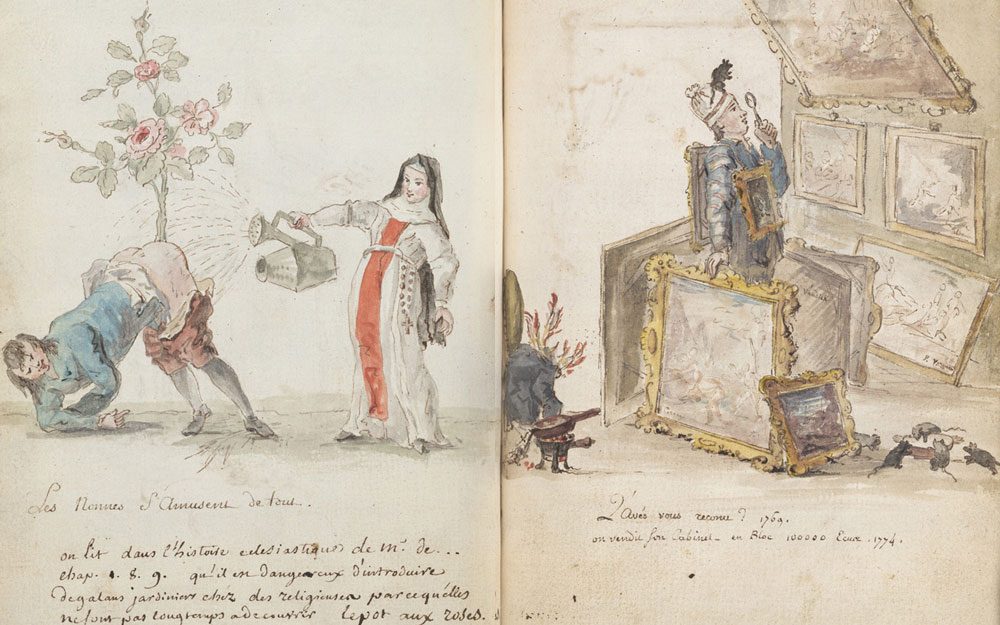 Les Nonnes S'Amusent de tout.
on lit dans l'histoire eclesiastique de mr. de...
chap. 1. 8. 9. qu'il est dangereux d'introduire
de galans jardiniers chez des religieuses parcequ'elles
ne sont pas longtemps a decouvrir le pot aux roses.
L'avés vous reconu? 1769.
on vendit son Cabinet en Bloc 100000 Ecus. 1774.